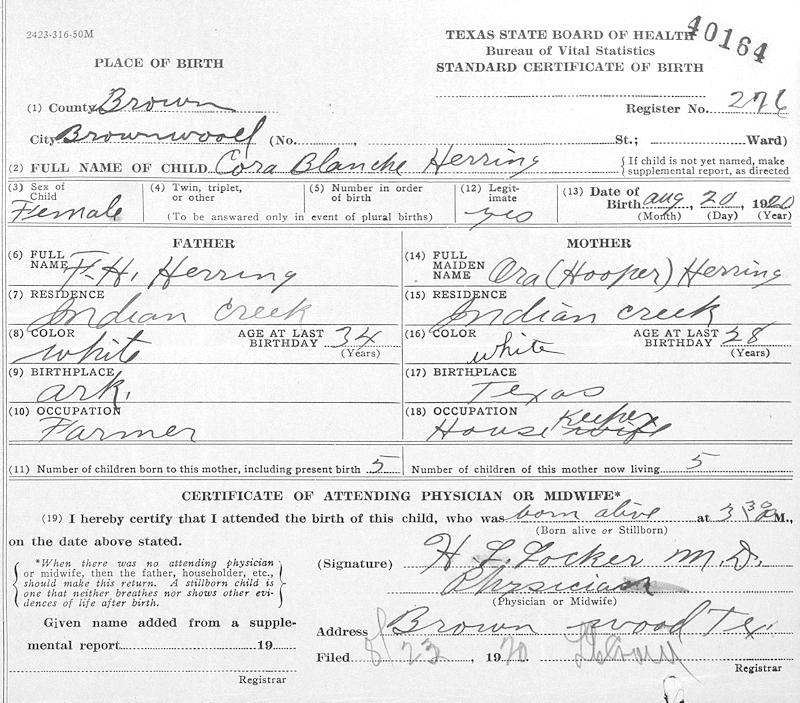 2423-316-50M
TEXAS STATE BOARD OF HEALTH
40164
Bureau of Vital Statistics
PLACE OF BIRTH
STANDARD CERTIFICATE OF BIRTH
(1) County Brown
Register No. 276
City Brownwood (No. , St.; Ward)
(2) FULL NAME OF CHILD Cora Blanche Herring { If child is not yet named, make supplemental report, as directed
(3) Sex of Child Female
(4) Twin, triplet, or other
(5) Number in order of birth
(To be answered only in event of plural births)
(12) Legitimate yes
(13) Date of Birth Aug 20, 1920
(Month) (Day) (Year)
FATHER
(6) FULL NAME F. H. Herring
(7) RESIDENCE Indian Creek
(8) COLOR white AGE AT LAST BIRTHDAY 34 (Years)
(9) BIRTHPLACE Ark.
(10) OCCUPATION Farmer
MOTHER
(14) FULL MAIDEN NAME Ora (Hooper) Herring
(15) RESIDENCE Indian Creek
(16) COLOR white AGE AT LAST BIRTHDAY 28 (Years)
(17) BIRTHPLACE Texas
(18) OCCUPATION House Keeper wife
(11) Number of children born to this mother, including present birth 5
Number of children of this mother now living 5
CERTIFICATE OF ATTENDING PHYSICIAN OR MIDWIFE*
(19) I hereby certify that I attended the birth of this child, who was born alive at 3 30 M.,
(Born alive or Stillborn)
on the date above stated.
*When there was no attending physician
or midwife, then the father, householder, etc.,
should make this return. A stillborn child is
one that neither breathes nor shows other evi-
dences of life after birth.
(Signature) H. L. Locker M.D.
Physician
(Physician or Midwife)
Given name added from a supple-
mental report 19
Registrar
Address Brown wood Tex
Filed 8 23, 1920
Registrar